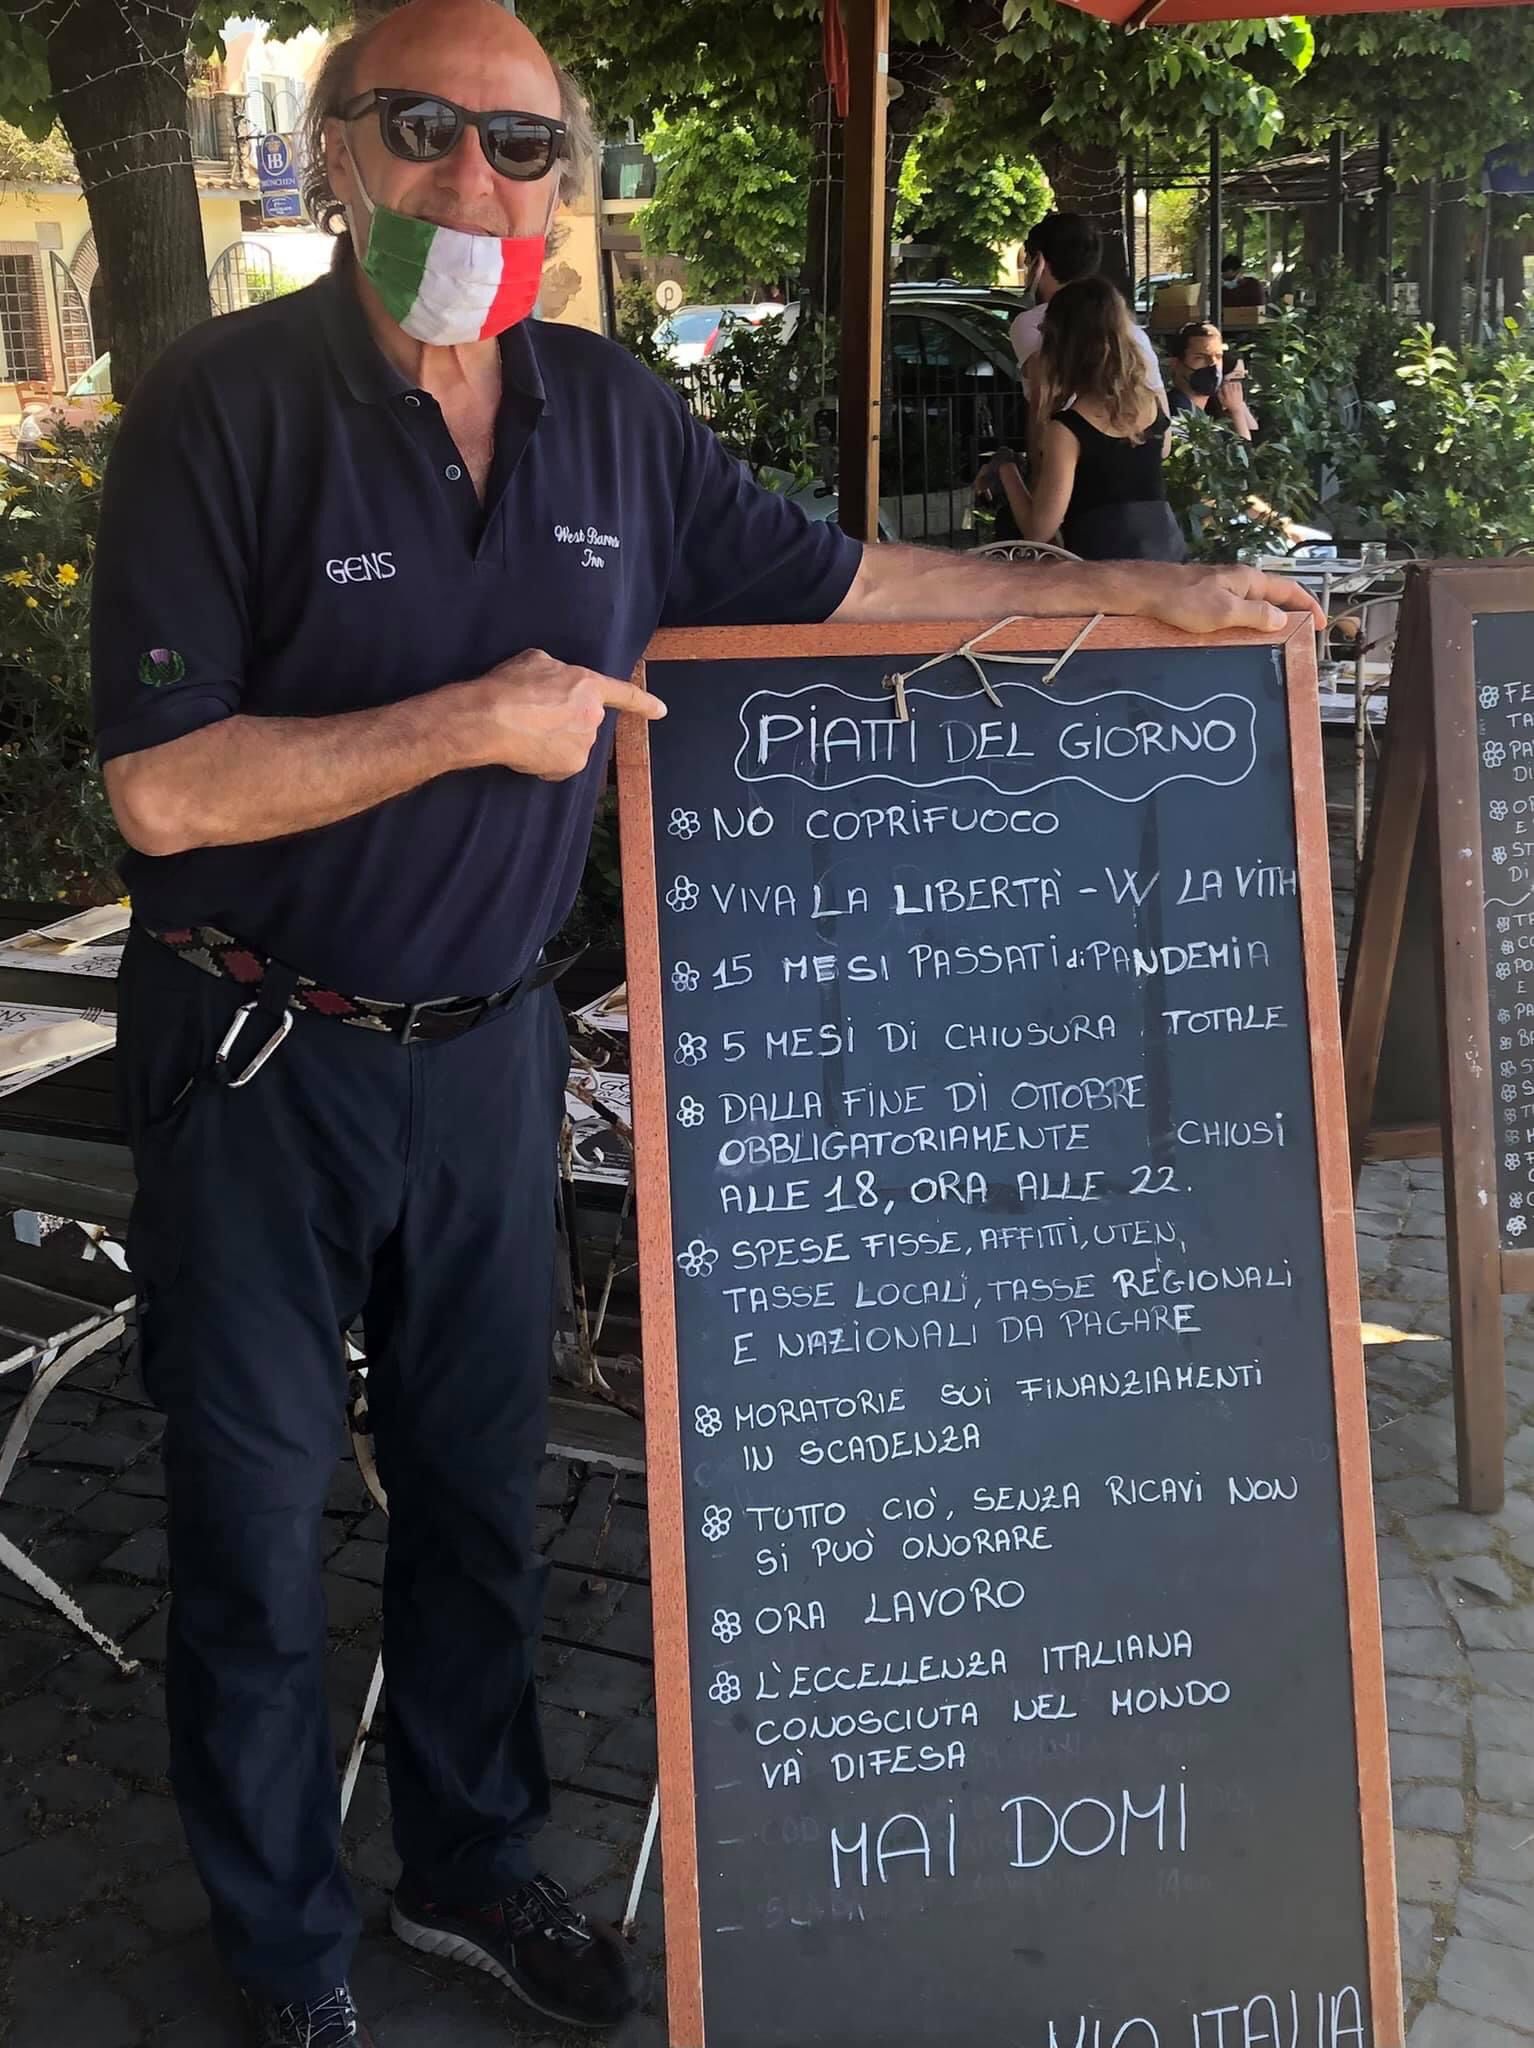 HB
MÜNCHEN
P
GENS
West Barns
Inn
PIATTI DEL GIORNO
NO COPRIFUOCO
VIVA LA LIBERTÀ - W LA VITA
15 MESI PASSATI di PANDEMIA
5 MESI DI CHIUSURA TOTALE
DALLA FINE DI OTTOBRE
OBBLIGATORIAMENTE CHIUSI
ALLE 18, ORA ALLE 22.
SPESE FISSE, AFFITTI, UTEN,
TASSE LOCALI, TASSE REGIONALI
E NAZIONALI DA PAGARE
MORATORIE SUI FINANZIAMENTI
IN SCADENZA
TUTTO CIÒ, SENZA RICAVI NON
SI PUÒ ONORARE
ORA LAVORO
L'ECCELLENZA ITALIANA
CONOSCIUTA NEL MONDO
VÀ DIFESA
MAI DOMI
ITALIA